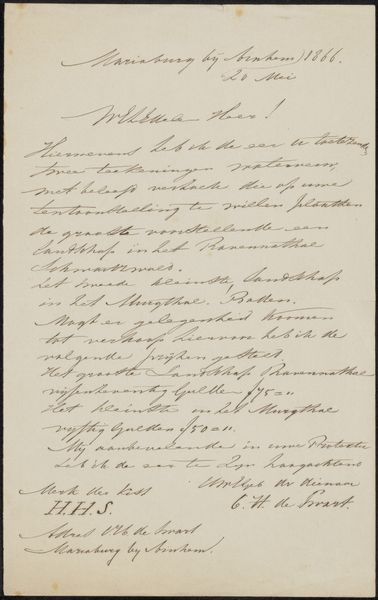 Mariaburg by Arnhem) 1866.
20 Mei
WelEdele Heer!
Hiernevens heb ik de eer U toe te zenden
twee teekeningen waterverw,
met beleefd verzoek die op uwe
tentoonstelling te willen plaatsen
de grootste voorstellende een
landschap in het Ravennathal
Schwartzwald.
het tweede kleinste landschap
in het Murgthal, Baden.
Mogt er gelegenheid komen
tot verkoop hiervan heb ik de
volgende prijzen gesteld.
Het grootste Landschap Ravennathal
vijfenzeventig Gulden f 75 =".
Het kleinste in het Murgthal
vyftig Gulden f 50 =".
My aanbevelende in uwe Protectie
heb ik de eer te zyn hoogachtend
Merk der Kist UwelEd dv dienaar
H.H.S. C. H. de Swart.
Adres de Swart
Mariaburg by Arnhem.